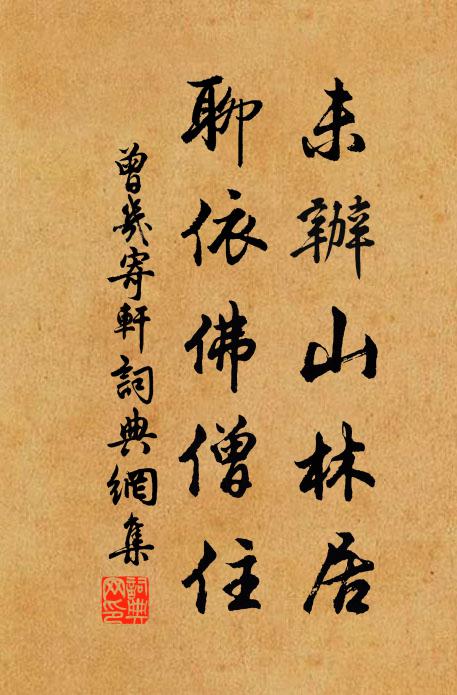 未辦山林居
聊依佛僧住
曾幾寄軒詞典網集
詞典
网印